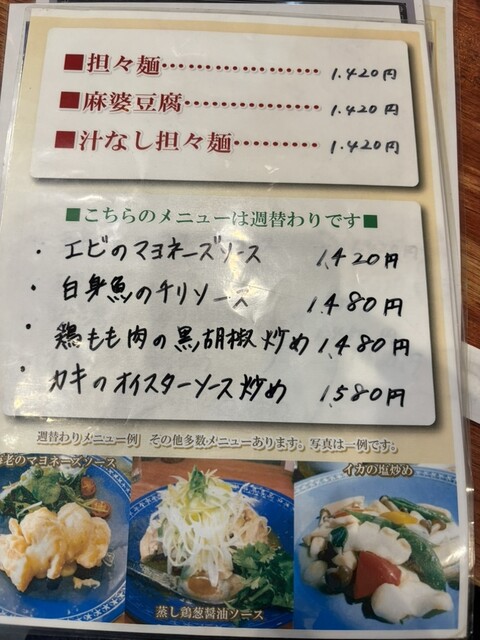 ■担々麺………………… 1.420円
■麻婆豆腐…………… 1.420円
■汁なし担々麺……… 1.420円
■こちらのメニューは週替わりです■
・エビのマヨネーズソース 1,420円
・白身魚のチリソース 1,480円
・鶏もも肉の黒胡椒炒め 1,480円
・カキのオイスターソース炒め 1,580円
週替わりメニュー例 その他多数メニューあります。写真は一例です。
老のマヨネーズソース
イカの塩炒め
蒸し鶏葱醤油ソース